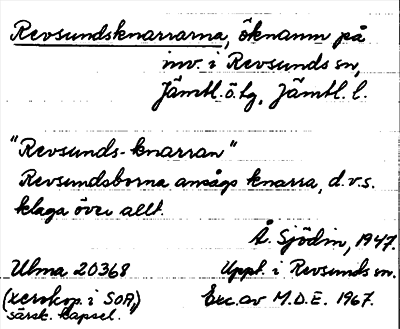 Revsundsknarrarna, öknamn på
inv. i Revsunds sn,
Jämtl. ö. tg, Jämtl. l.
"Revsunds-knarran"
Revsundsborna ansågs knarra, d.v.s.
klaga över allt.
Å. Sjödin, 1947.
Ulma 20368 Uppt. i Revsunds sn.
(xerokop. i SOA, Exc. av M.D.E. 1967.
särsk. kapsel.)